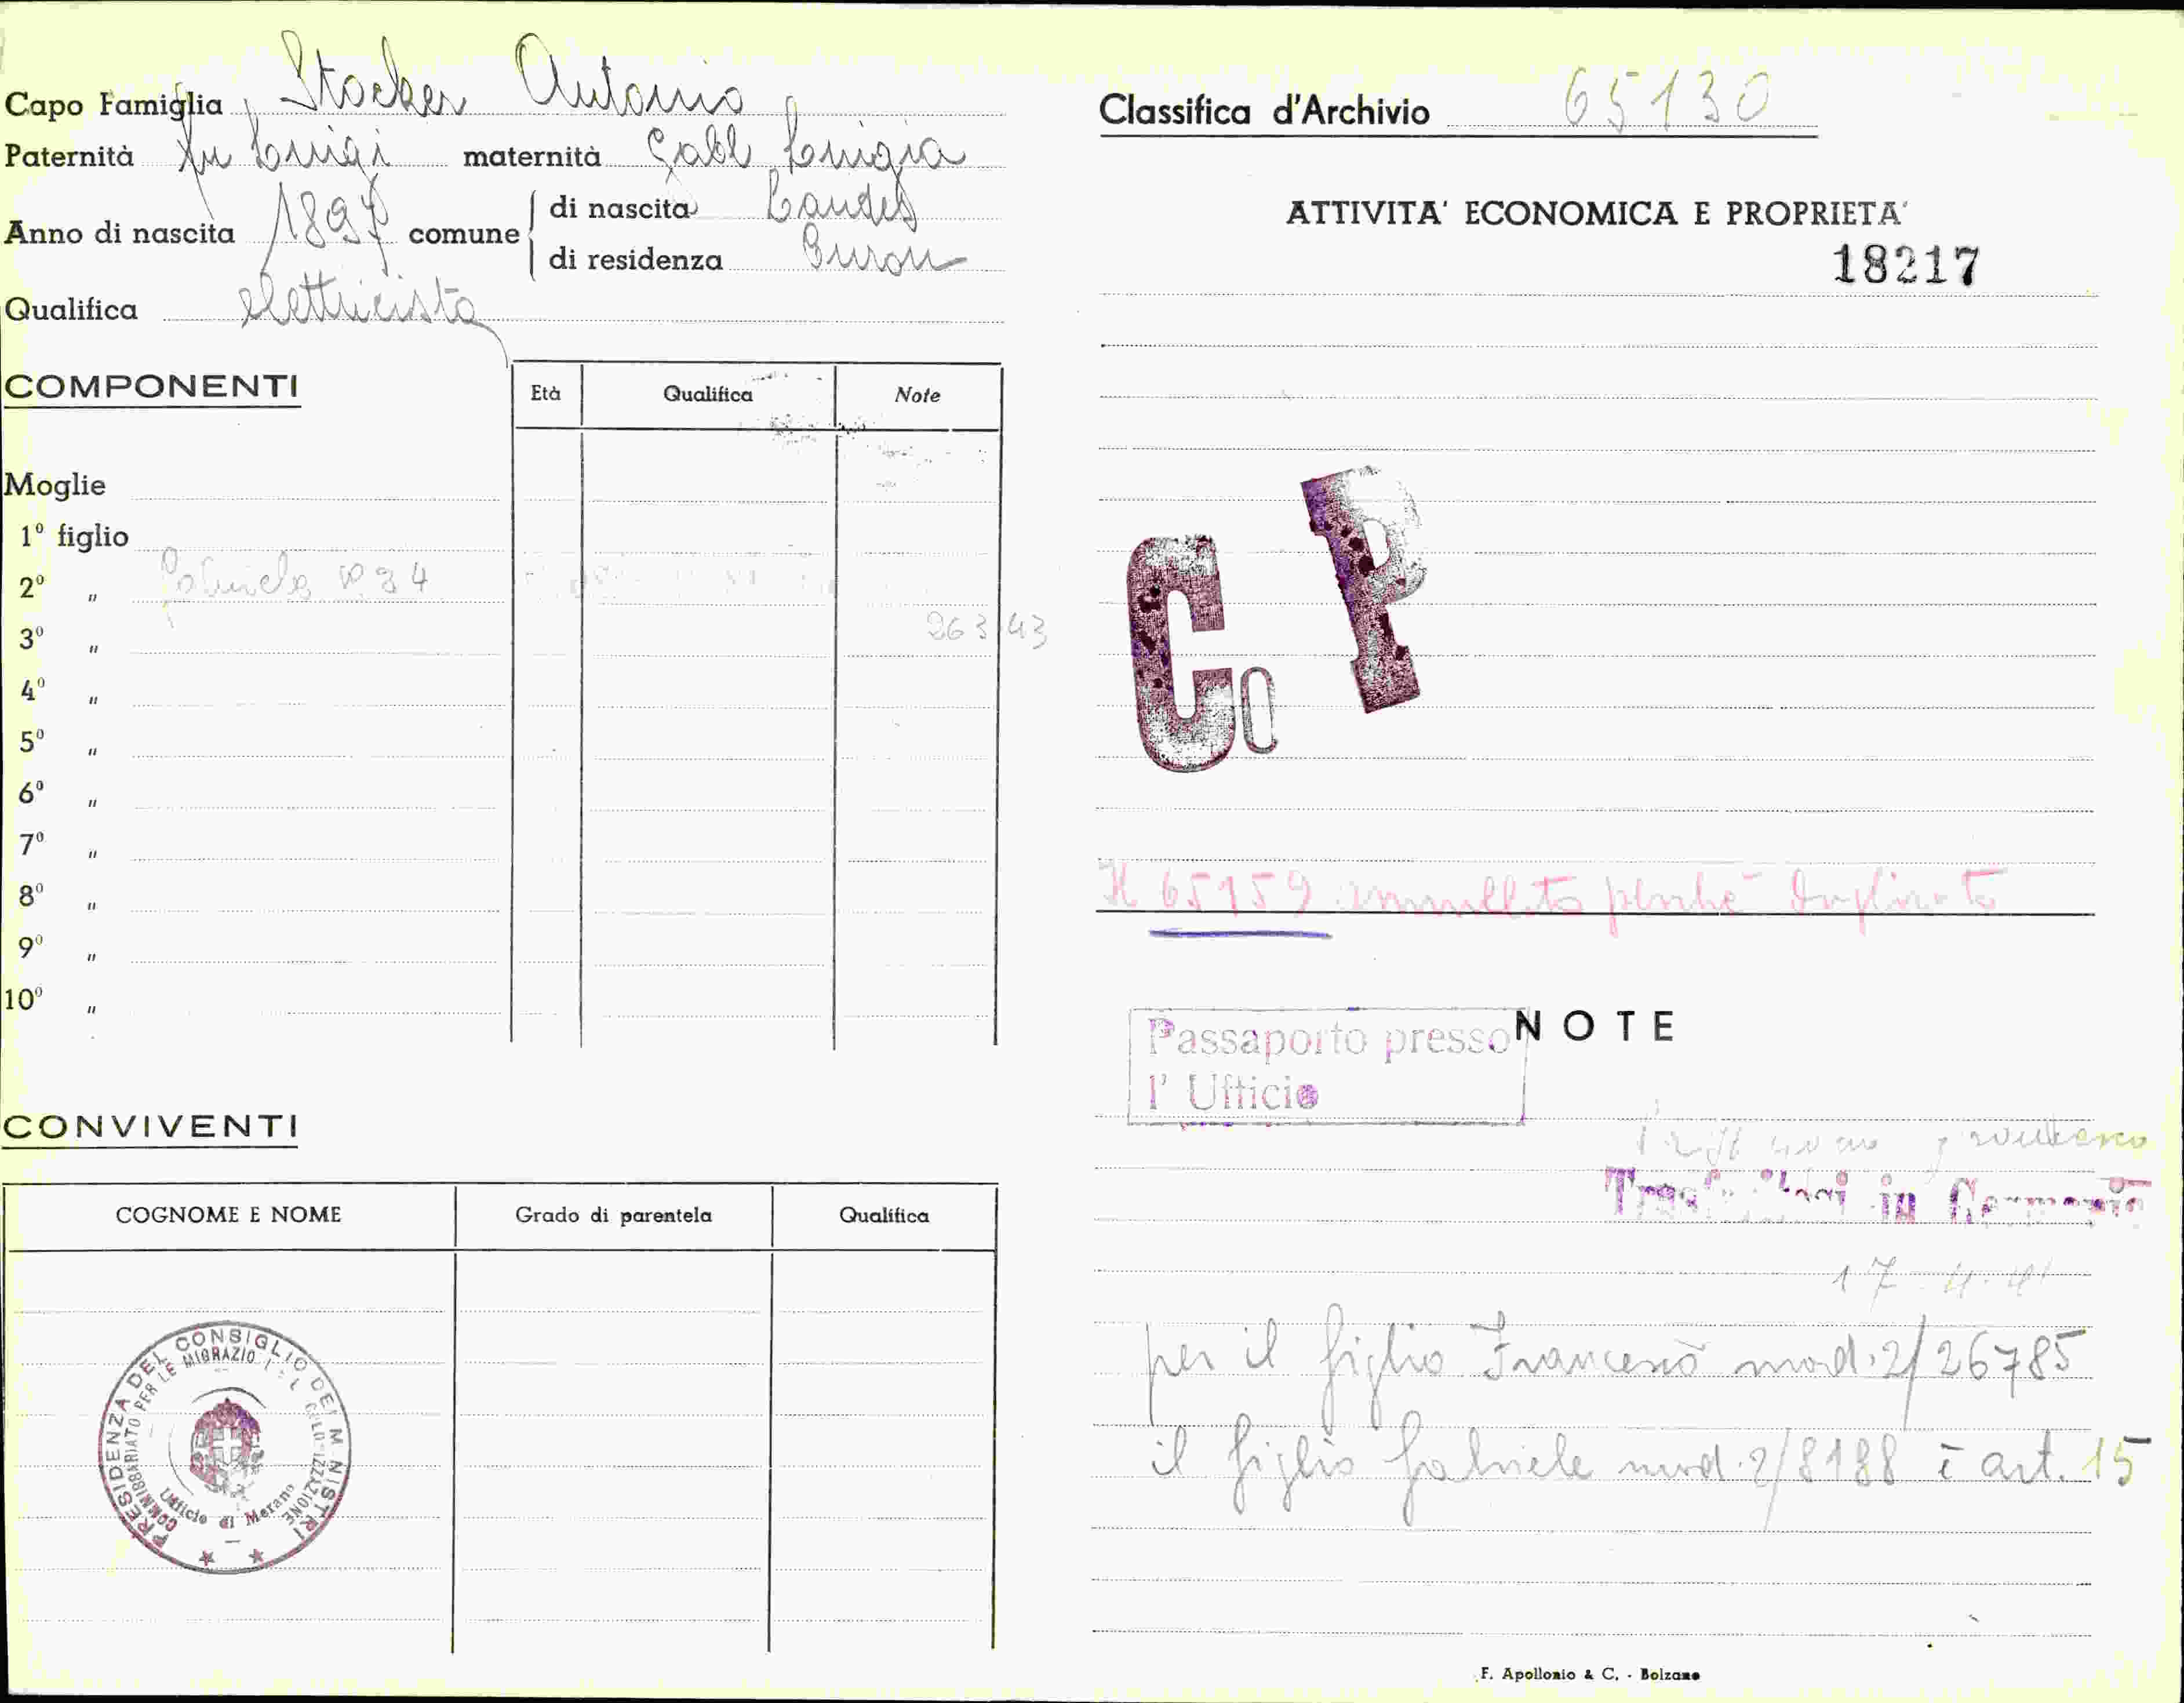 Capo Famiglia Stocker Antonio
Paternità fu Luigi maternità Gabl Luigia
Anno di nascita 1897 comune di nascita Landes
di residenza Curon
Qualifica elettricista
COMPONENTI Età Qualifica Note
Moglie
1º figlio
2º " Gabriele 1934
3º " 26343
4º "
5º "
6º "
7º "
8º "
9º "
10º "
CONVIVENTI
COGNOME E NOME Grado di parentela Qualifica
PRESIDENZA DEL CONSIGLIO DEI MINISTRI
COMMISSARIATO PER LE MIGRAZIONI E LA COLONIZZAZIONE
Ufficio di Merano
Classifica d'Archivio 65130
ATTIVITA' ECONOMICA E PROPRIETA'
18217
Co P
Il 65159 annullato perché duplicato
NOTE
Passaporto presso
l' Ufficio
in Germania
17-4-41
per il figlio Francesco mod. 2/26785
il figlio Gabriele mod. 2/8188 è art. 15
F. Apollonio & C. - Bolzano